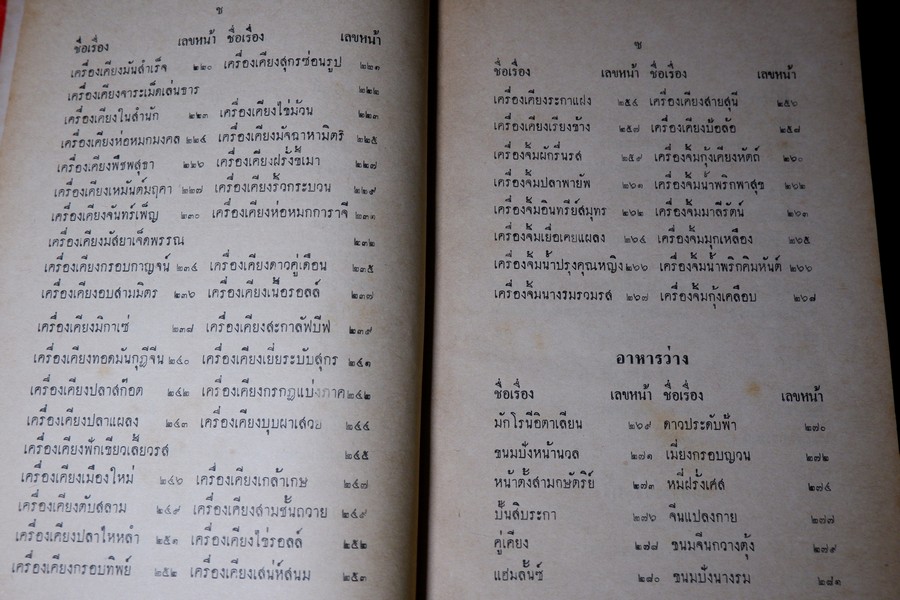 ช
ชื่อเรื่อง เลขหน้า ชื่อเรื่อง เลขหน้า
เครื่องเคียงมันสำเร็จ ๒๒๐ เครื่องเคียงสุกรซ่อนรูป ๒๒๑
เครื่องเคียงจาระเม็ดเล่นธาร ๒๒๒
เครื่องเคียงในสำนัก ๒๒๓ เครื่องเคียงไข่ม้วน ๒๒๓
เครื่องเคียงห่อหมกมงคล ๒๒๔ เครื่องเคียงมัจฉาหามิตริ ๒๒๕
เครื่องเคียงพืชพสุธา ๒๒๖ เครื่องเคียงฝรั่งขี้เมา ๒๒๗
เครื่องเคียงเหมันต์มฤคา ๒๒๗ เครื่องเคียงริ้วกระบวน ๒๒๙
เครื่องเคียงจันทร์เพ็ญ ๒๓๐ เครื่องเคียงห่อหมกการาจี ๒๓๑
เครื่องเคียงมัสยาเจ็ดพรรณ ๒๓๒
เครื่องเคียงกรอบกาญจน์ ๒๓๔ เครื่องเคียงดาวคู่เดือน ๒๓๕
เครื่องเคียงอบสามมิตร ๒๓๖ เครื่องเคียงเนื้อรอลล์ ๒๓๗
เครื่องเคียงมิกาเซ่ ๒๓๘ เครื่องเคียงสะกาลัฟบีฟ ๒๓๙
เครื่องเคียงทอดมันกุฎีจีน ๒๔๐ เครื่องเคียงเยี่ยระบับสุกร ๒๔๑
เครื่องเคียงปลาสก๊อต ๒๔๒ เครื่องเคียงกรกฎแบ่งภาค ๒๔๒
เครื่องเคียงปลาแผลง ๒๔๓ เครื่องเคียงบุบผาเสวย ๒๔๔
เครื่องเคียงฟักเขียวเสี้ยวรส ๒๔๕
เครื่องเคียงเมืองใหม่ ๒๔๖ เครื่องเคียงเกล้าเกษ ๒๔๗
เครื่องเคียงตับสลาม ๒๔๙ เครื่องเคียงสามชั้นถวาย ๒๔๙
เครื่องเคียงปลาไหหลำ ๒๕๑ เครื่องเคียงไข่รอลล์ ๒๕๒
เครื่องเคียงกรอบทิพย์ ๒๕๒ เครื่องเคียงเสน่ห์สนม ๒๕๓
ซ
ชื่อเรื่อง เลขหน้า ชื่อเรื่อง เลขหน้า
เครื่องเคียงระกาแฝง ๒๕๔ เครื่องเคียงสายสุนี ๒๕๖
เครื่องเคียงเรียงข้าง ๒๕๗ เครื่องเคียงบ๊อล้อ ๒๕๘
เครื่องจิ้มผักรื่นรส ๒๕๙ เครื่องจิ้มกุ้งเคียงหัตถ์ ๒๖๐
เครื่องจิ้มปลาพายัพ ๒๖๑ เครื่องจิ้มน้ำพริกพาสุข ๒๖๒
เครื่องจิ้มอินทรีย์สมุทร ๒๖๒ เครื่องจิ้มมาลีรัตน์ ๒๖๓
เครื่องจิ้มเยื่อเคยแผลง ๒๖๔ เครื่องจิ้มมุกเหลือง ๒๖๕
เครื่องจิ้มน้ำปรุงคุณหญิง ๒๖๖ เครื่องจิ้มน้ำพริกคิมหันต์ ๒๖๖
เครื่องจิ้มนางรมรวมรส ๒๖๗ เครื่องจิ้มกุ้งเคลือบ ๒๖๘
อาหารว่าง
ชื่อเรื่อง เลขหน้า ชื่อเรื่อง เลขหน้า
มักโรนีอิตาเลียน ๒๖๙ ดาวประดับฟ้า ๒๗๐
ขนมปังหน้านวล ๒๗๑ เมี่ยงกรอบญวน ๒๗๒
หน้าตั้งสามกษัตริย์ ๒๗๓ หมี่ฝรั่งเศส ๒๗๔
ปั้นสิบระกา ๒๗๖ จีนแปลงกาย ๒๗๗
คู่เคียง ๒๗๘ ขนมจีนกวางตุ้ง ๒๗๙
แฮ่มลั้นซ์ ๒๘๐ ขนมปังนางรม ๒๘๑